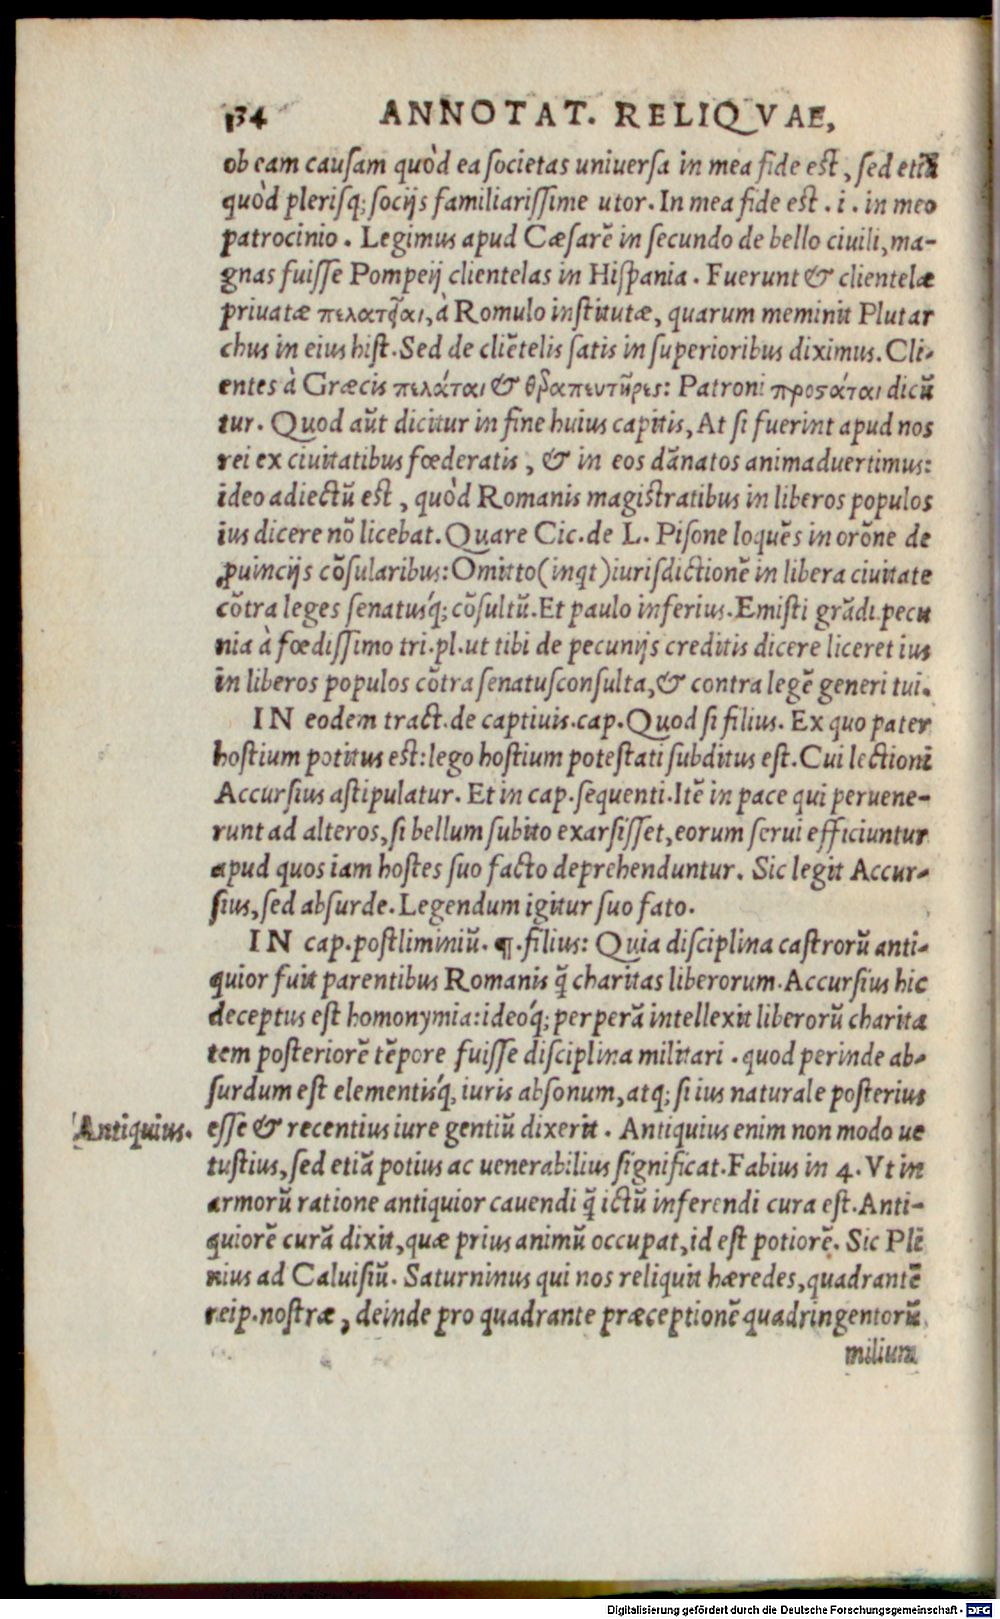 134 ANNOTAT. RELIQVAE,
ob eam causam quòd ea societas universa in mea fide est, sed etiã
quòd plerisq; socijs familiarissime utor. In mea fide est .i. in meo
patrocinio. Legimus apud Cæsarẽ in secundo de bello ciuili, ma-
gnas fuisse Pompeij clientelas in Hispania. Fuerunt & clientelæ
priuatæ à Romulo institutæ, quarum meminit Plutar
chus in eius hist. Sed de cliẽtelis satis in superioribus diximus. Cli-
entes à Græcis πελάται & θεραπευτῆρες: Patroni προςάται dicũ
tur. Quod aũt dicitur in fine huius capitis, At si fuerint apud nos
rei ex ciuitatibus fœderatis, & in eos dãnatos animaduertimus:
ideo adiectũ est, quòd Romanis magistratibus in liberos populos
ius dicere nõ licebat. Quare Cic. de L. Pisone loquẽs in orõne de
ꝓuincijs cõsularibus: Omitto (inqt) iurisdictionẽ in libera ciuitate
cõtra leges senatusq́; cõsultũ. Et paulo inferius. Emisti grãdi pecu
nia à fœdissimo tri. pl. ut tibi de pecunijs creditis dicere liceret ius
in liberos populos cõtra senatusconsulta, & contra legẽ generi tui.
IN eodem tract. de captiuis. cap. Quod si filius. Ex quo pater
hostium potitus est: lego hostium potestati subditus est. Cui lectioni
Accursius astipulatur. Et in cap. sequenti. Itẽ in pace qui peruene-
runt ad alteros, si bellum subito exarsisset, eorum serui efficiuntur
apud quos iam hostes suo facto deprehenduntur. Sic legit Accur-
sius, sed absurde. Legendum igitur suo fato.
IN cap. postliminiũ. ¶. filius: Quia disciplina castrorũ anti-
quior fuit parentibus Romanis q̃ charitas liberorum. Accursius hic
deceptus est homonymia: ideoq́; perperã intellexit liberorũ charita
tem posteriorẽ tẽpore fuisse disciplina militari. quod perinde ab-
surdum est elementisq́; iuris absonum, atq; si ius naturale posterius
Antiquius. esse & recentius iure gentiũ dixerit. Antiquius enim non modo ue
tustius, sed etiã potius ac uenerabilius significat. Fabius in 4. Vt in
armorũ ratione antiquior cauendi q̃ ictũ inferendi cura est. Anti-
quiorẽ curã dixit, quæ prius animũ occupat, id est potiorẽ. Sic Pli
nius ad Caluisiũ. Saturninus qui nos reliquit hæredes, quadrantẽ
reip. nostræ, deinde pro quadrante præceptionẽ quadringentorũ
milium
Digitalisierung gefördert durch die Deutsche Forschungsgemeinschaft - DFG